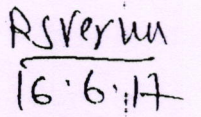 RSVerma
16.6.17